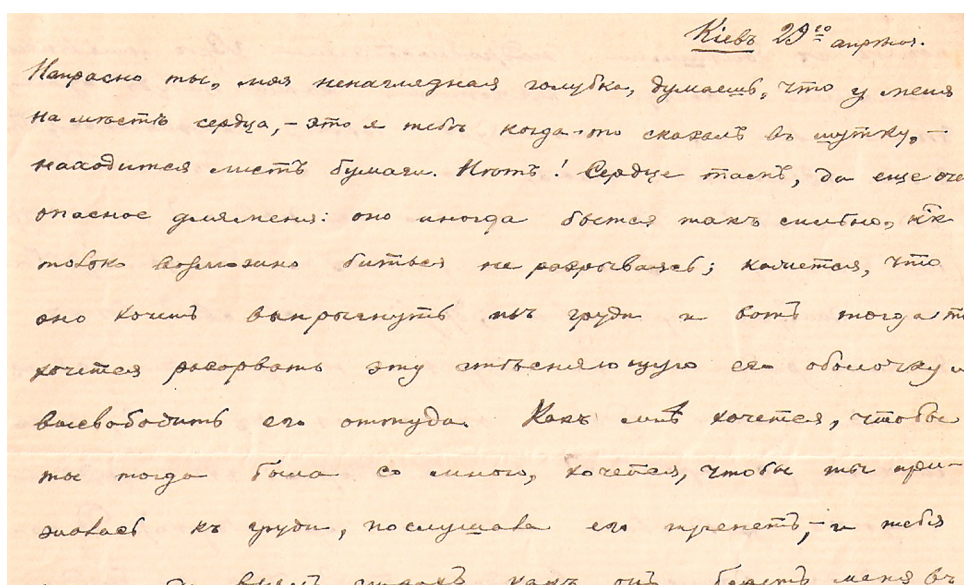 Кіевъ 29го апрѣля.
Напрасно ты, моя ненаглядная голубка, думаешь, что у меня
на мѣстѣ сердца, – это я тебѣ когда-то сказалъ въ шутку, –
находится листъ бумаги. Нѣтъ! Сердце тамъ, да еще оче
опасное для меня: оно иногда бьется такъ сильно, какъ
только возможно биться не разрываясь; кажется, что
оно хочетъ выпрыгнуть изъ груди и вотъ тогда т
хочется разорвать эту стѣсняющую его оболочку и
высвободить его оттуда. Какъ мнѣ хочется, чтобы
ты тогда была со мною, хочется, чтобы ты при-
жалась къ груди, послушала его трепетъ, – и тебя
какъ онъ беретъ меня въ